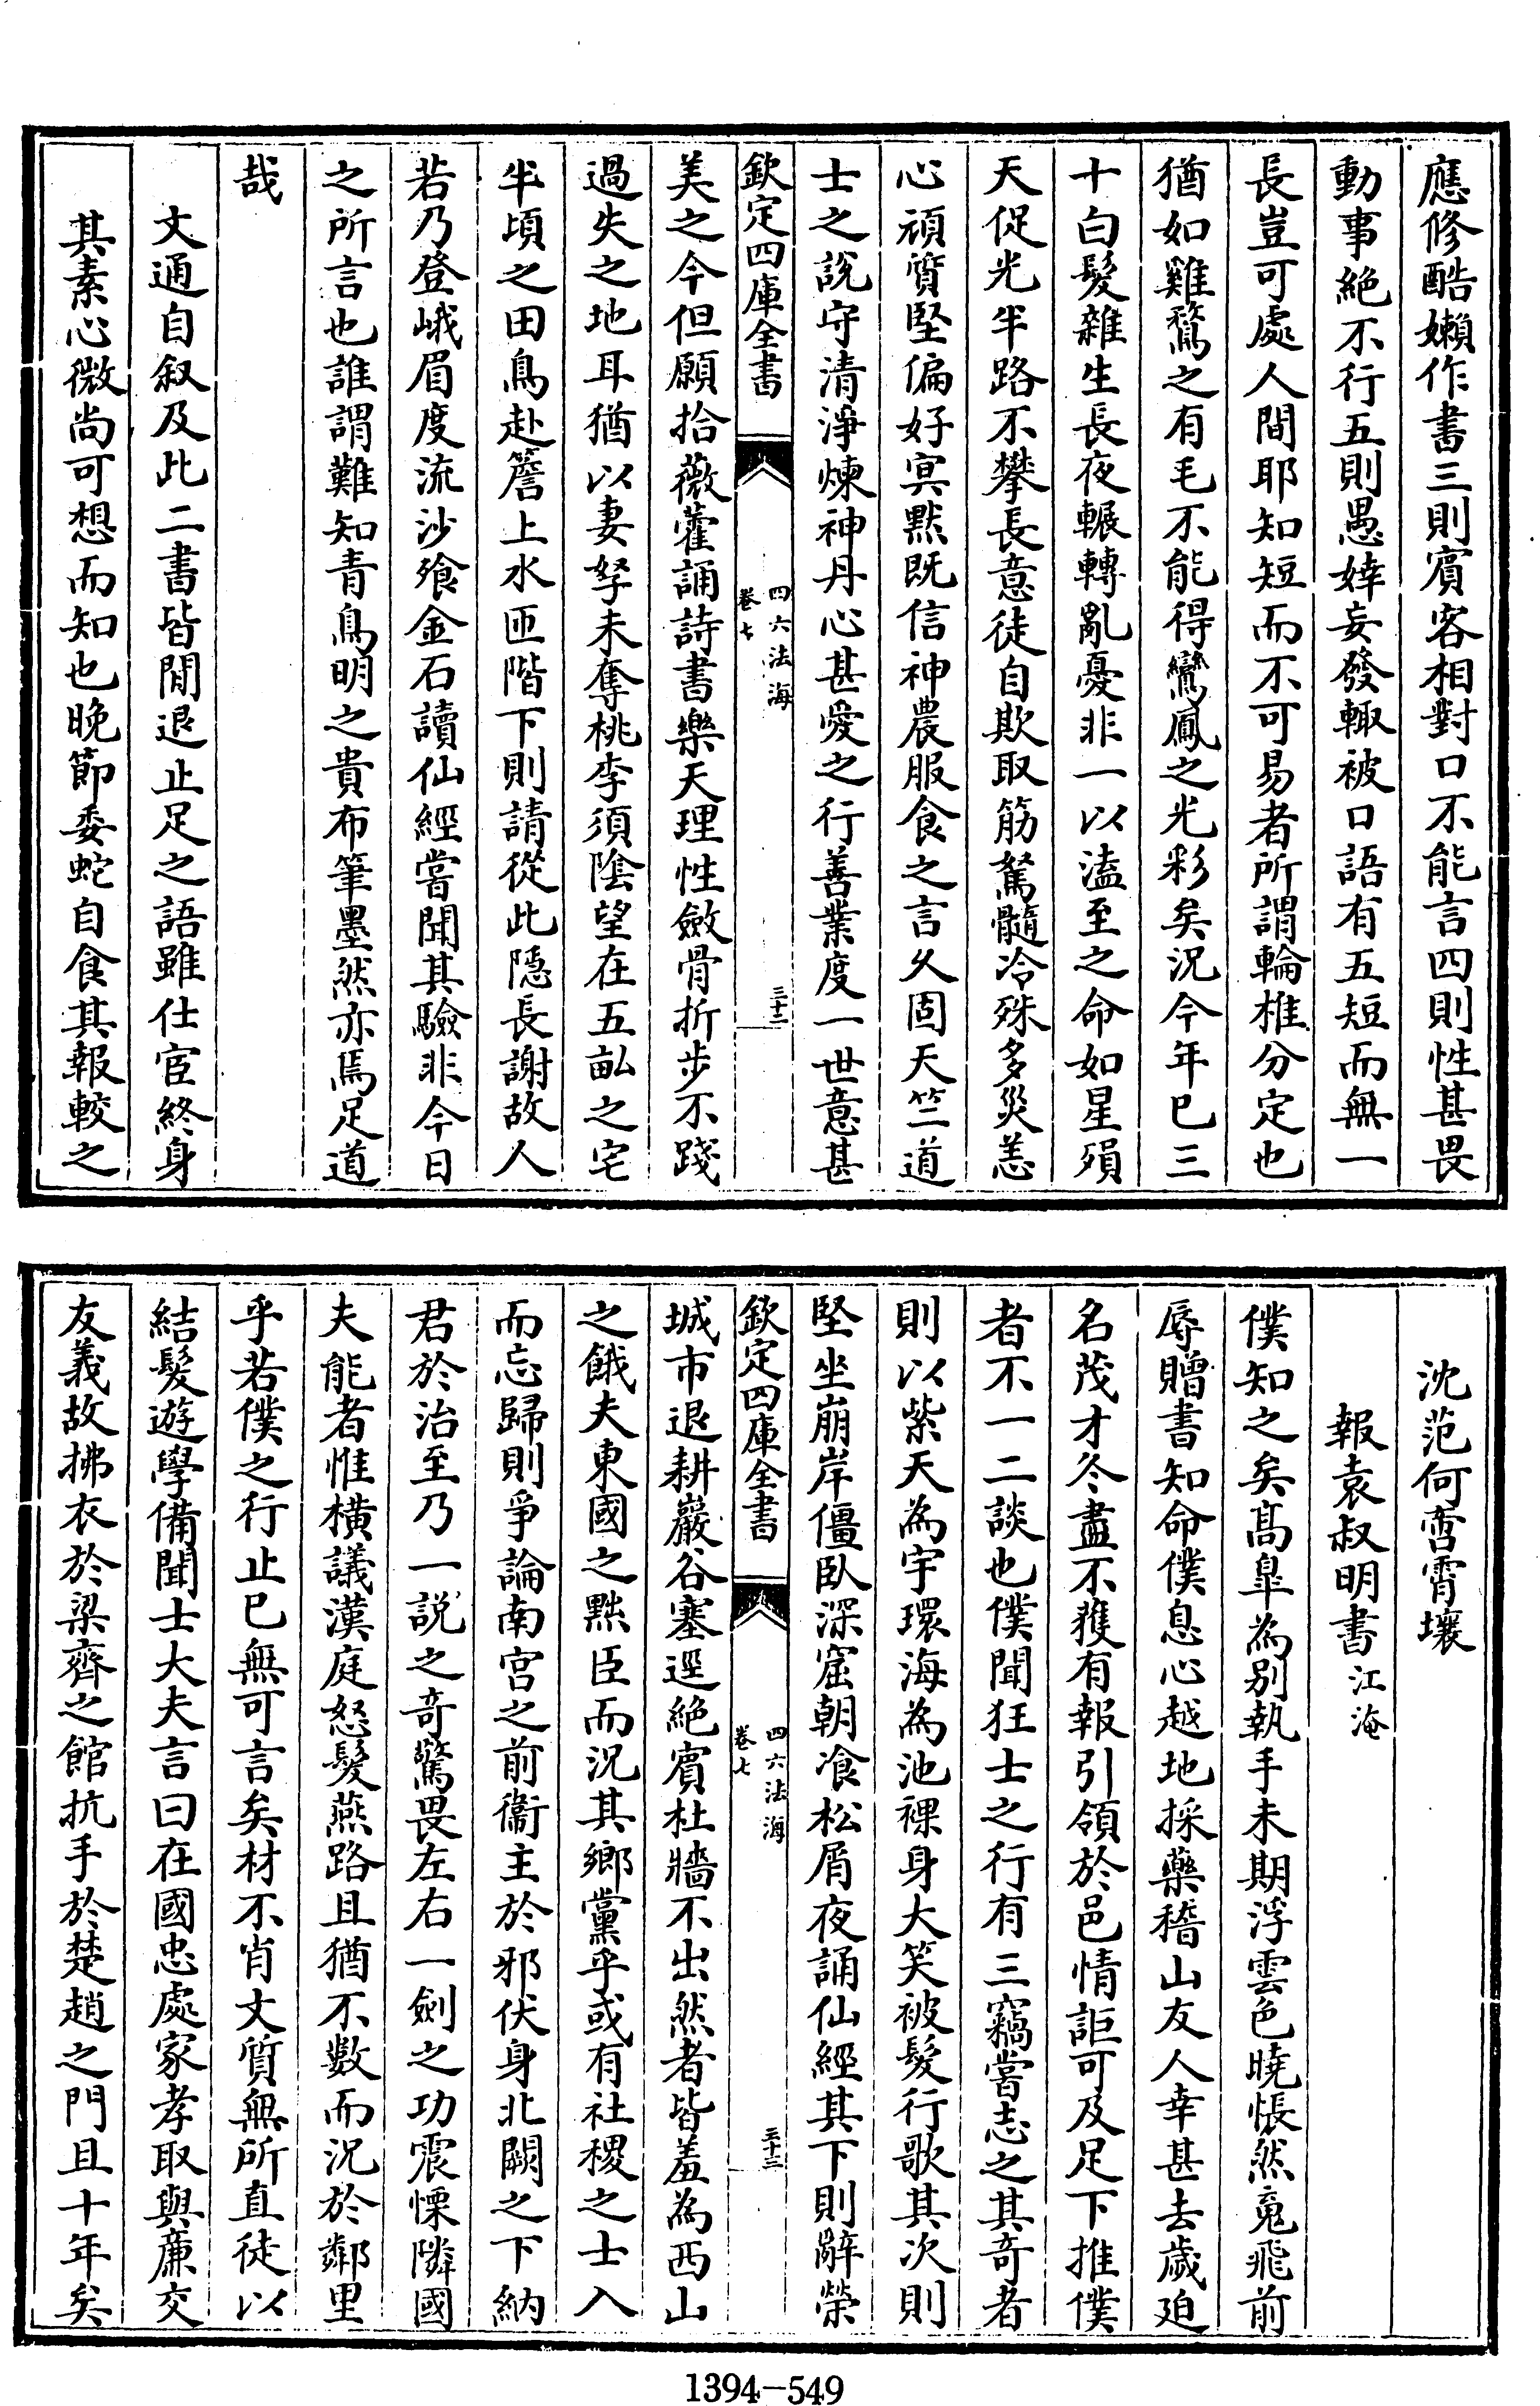 應修酷嬾作書三則賓客相對口不能言四則性甚畏
動事絶不行五則愚婞妄發輙被口語有五短而無一
長豈可處人間耶知短而不可易者所謂輪椎分定也
猶如雞鶩之有毛不能得鸞鳳之光彩矣況今年已三
十白髮雜生長夜輾轉亂憂非一以溘至之命如星殞
天促光半路不攀長意徒自欺取筋駑髓冷殊多災恙
心頑質堅偏好冥默既信神農服食之言久固天竺道
士之說守清淨煉神丹心甚愛之行善業度一世意甚
欽定四庫全書
四六法海
卷七
三十二
美之今但願拾薇藿誦詩書樂天理性斂骨折步不踐
過失之地耳猶以妻孥未奪桃李須陰望在五畝之宅
半頃之田鳥赴簷上水匝階下則請從此隱長謝故人
若乃登峨眉度流沙飡金石讀仙經嘗聞其驗非今日
之所言也誰謂難知青鳥明之貴布筆墨然亦焉足道
哉
文通自叙及此二書皆閒退止足之語雖仕宦終身
其素心微尚可想而知也晚節委蛇自食其報較之
沈范何啻霄壤
報袁叔明書江淹
僕知之矣高臯為别執手未期浮雲色曉悵然䰟飛前
辱贈書知命僕息心越地採藥稽山友人幸甚去歲廹
名茂才冬盡不獲有報引領於邑情詎可及足下推僕
者不一二談也僕聞狂士之行有三竊嘗志之其奇者
則以紫天為宇環海為池裸身大笑被髮行歌其次則
堅坐崩岸僵臥深窟朝飡松屑夜誦仙經其下則辭榮
欽定四庫全書
四六法海
卷七
三十三
城市退耕巖谷塞逕絶賓杜牆不出然者皆羞為西山
之餓夫東國之黜臣而況其鄉黨乎或有社稷之士入
而忘歸則爭論南宫之前衞主於邪伏身北闕之下納
君於治至乃一說之奇驚畏左右一劍之功震慄隣國
夫能者惟横議漢庭怒髮燕路且猶不數而況於鄰里
乎若僕之行止已無可言矣材不肖文質無所直徒以
結髮遊學備聞士大夫言曰在國忠處家孝取與廉交
友義故拂衣於梁齊之館抗手於楚趙之門且十年矣
1394-549